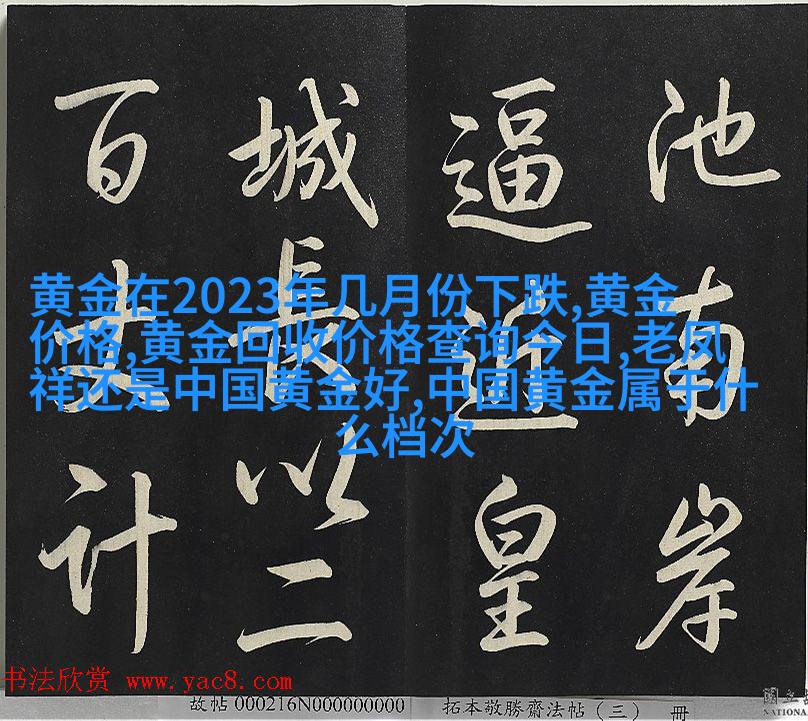 池南岸
逼近皇
城長以二
百丈計
黄金在2023年几月份下跌,黄金
价格,黄金回收价格查询今日,老凤
祥还是中国黄金好,中国黄金属于什
么档次
书法欣赏 www.yac8.com
故帖 000216N000000000 拓本敬勝齋法帖（三） 冊
國立